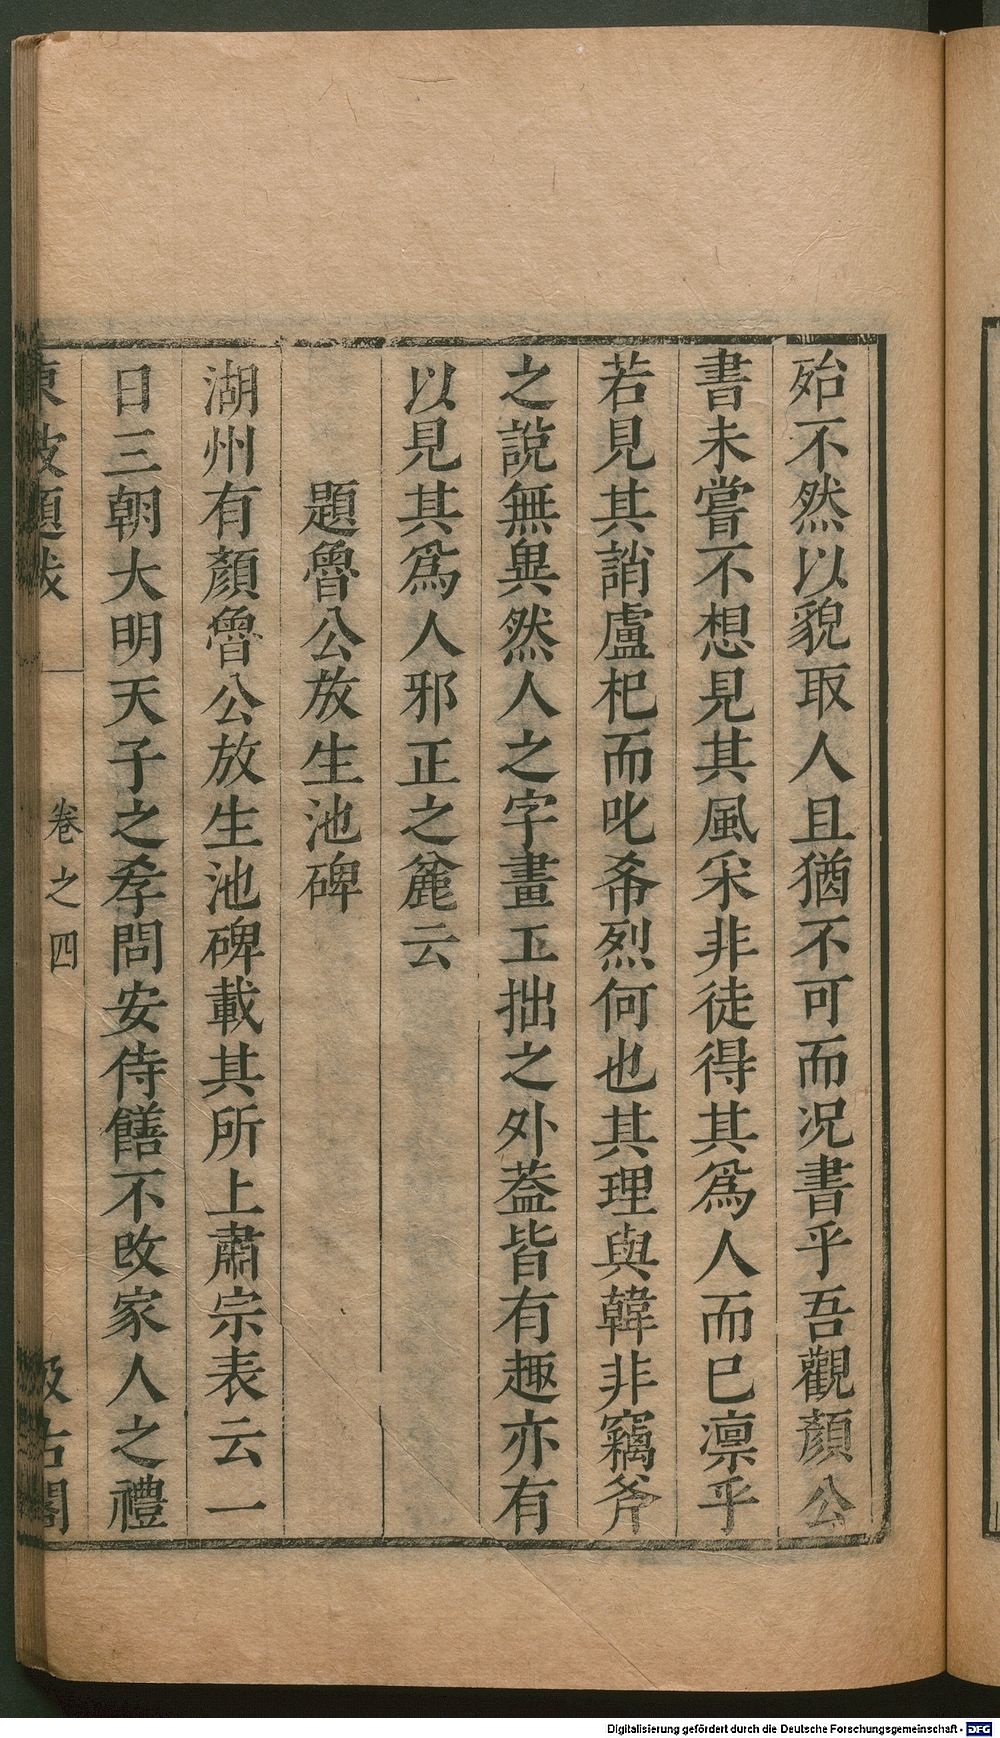 殆不然以貌取人且猶不可而况書乎吾觀顏公
書未嘗不想見其風采非徒得其爲人而已凛乎
若見其誚盧杞而叱希烈何也其理與韓非竊斧
之說無異然人之字畫工拙之外葢皆有趣亦有
以見其爲人邪正之麄云
題魯公放生池碑
湖州有顏魯公放生池碑載其所上肅宗表云一
日三朝大明天子之孝問安侍饍不改家人之禮
東坡題跋
卷之四
汲古閣
Digitalisierung gefördert durch die Deutsche Forschungsgemeinschaft - DFG